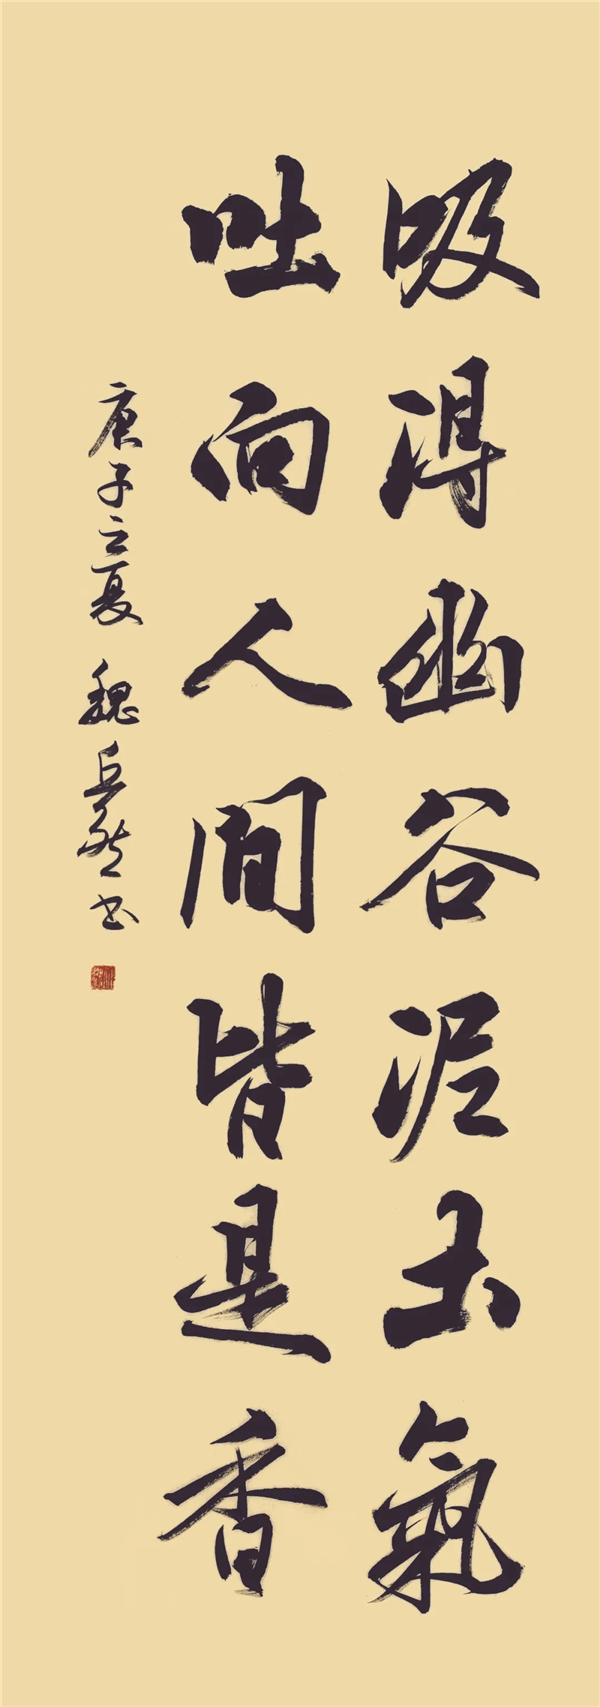 吸得幽谷泥土氣
吐向人間皆是香
庚子立夏 魏丘 书